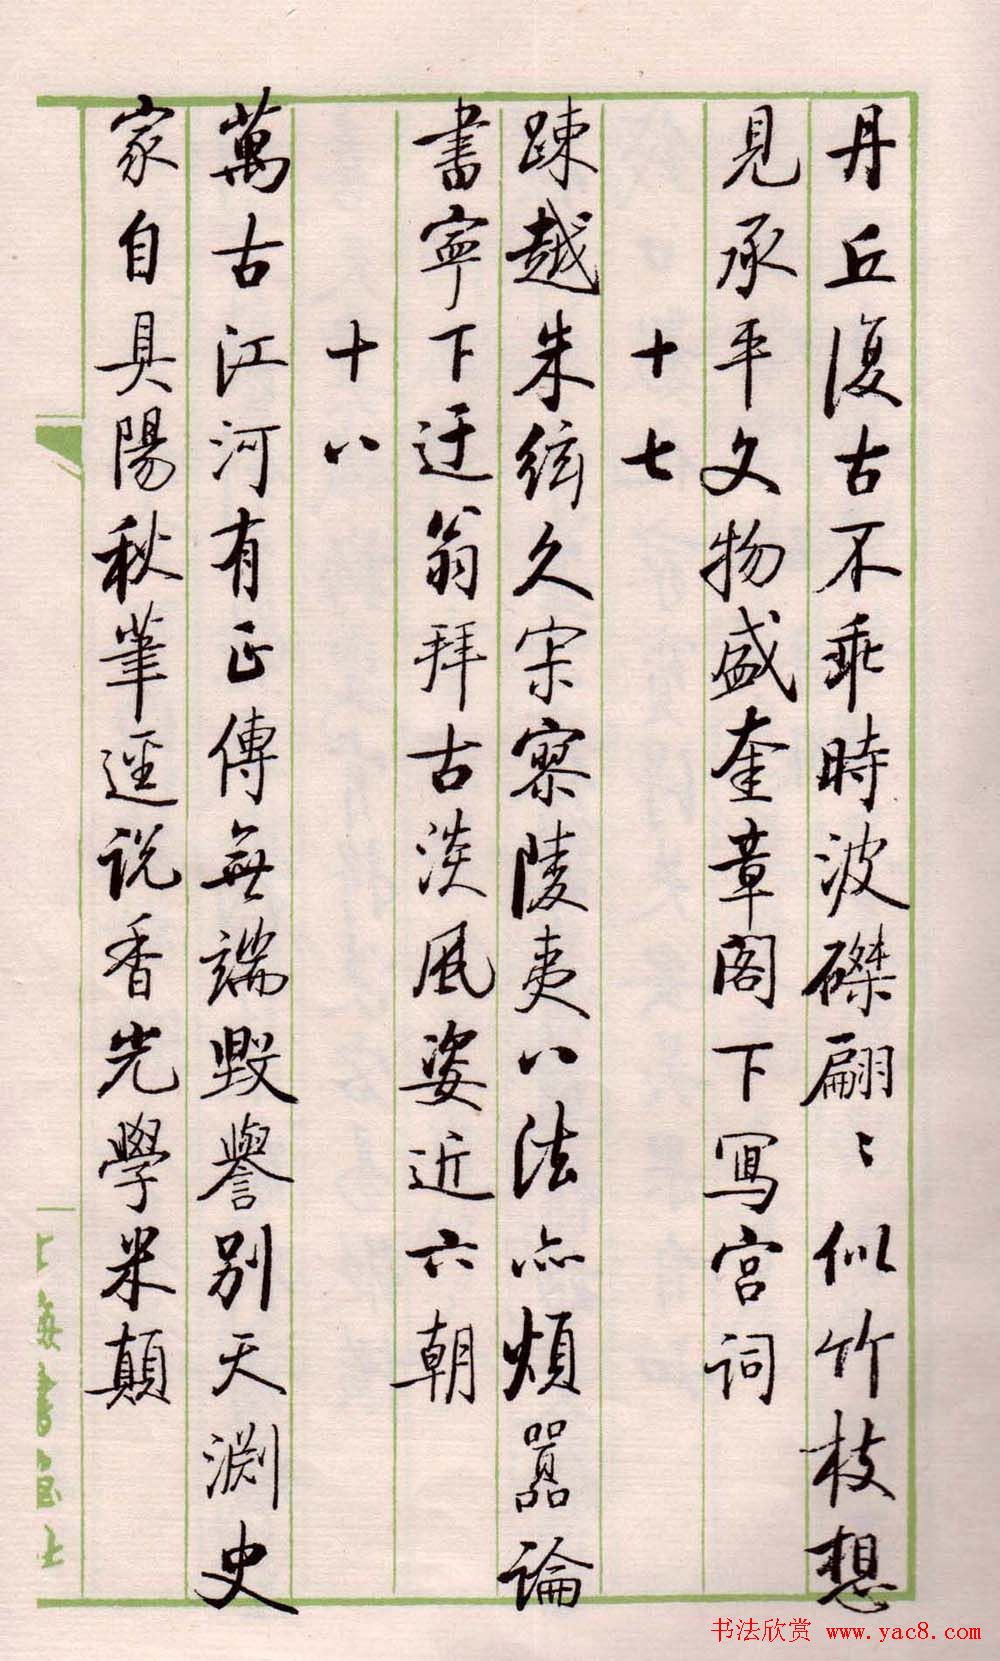 丹丘復古不乖時波磔翩〻似竹枝想
見承平文物盛奎章閣下寫宮词
十七
踈越朱絃久寂寥陵夷八法亦煩囂论
書寧下迂翁拜古淡風姿近六朝
十八
萬古江河有正傳無端毀譽别天淵史
家自具陽秋筆逕说香光學米顛
上海書画社
书法欣赏 www.yac8.com